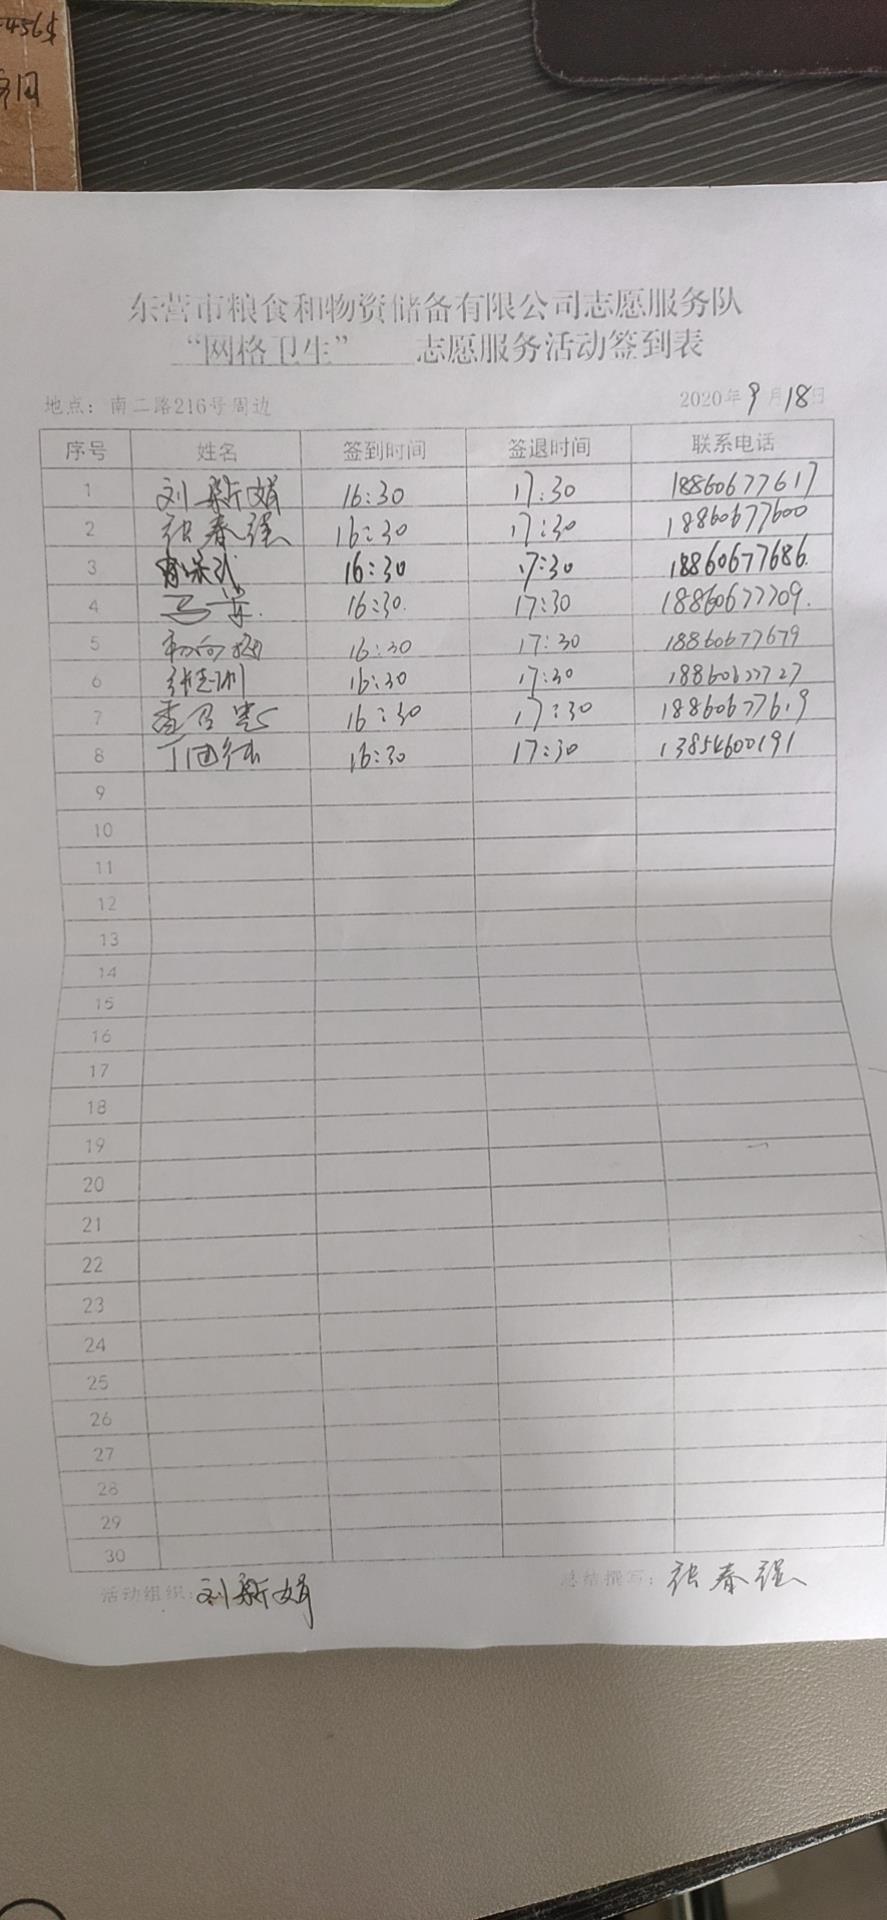 456
东营市粮食和物资储备有限公司志愿服务队
“网格卫生” 志愿服务活动签到表
地点：南二路216号周边 2020年9月18日
序号 姓名 签到时间 签退时间 联系电话
1 刘新娟 16:30 17:30 18860677617
2 张春强 16:30 17:30 18860677600
3 16:30 17:30 18860677686
4 16:30 17:30 18860677709
5 16:30 17:30 18860677679
6 16:30 17:30 18860677727
7 16:30 17:30 18860677619
8 16:30 17:30 13854600191
9
10
11
12
13
14
15
16
17
18
19
20
21
22
23
24
25
26
27
28
29
30
活动组织：刘新娟 总结撰写：张春强